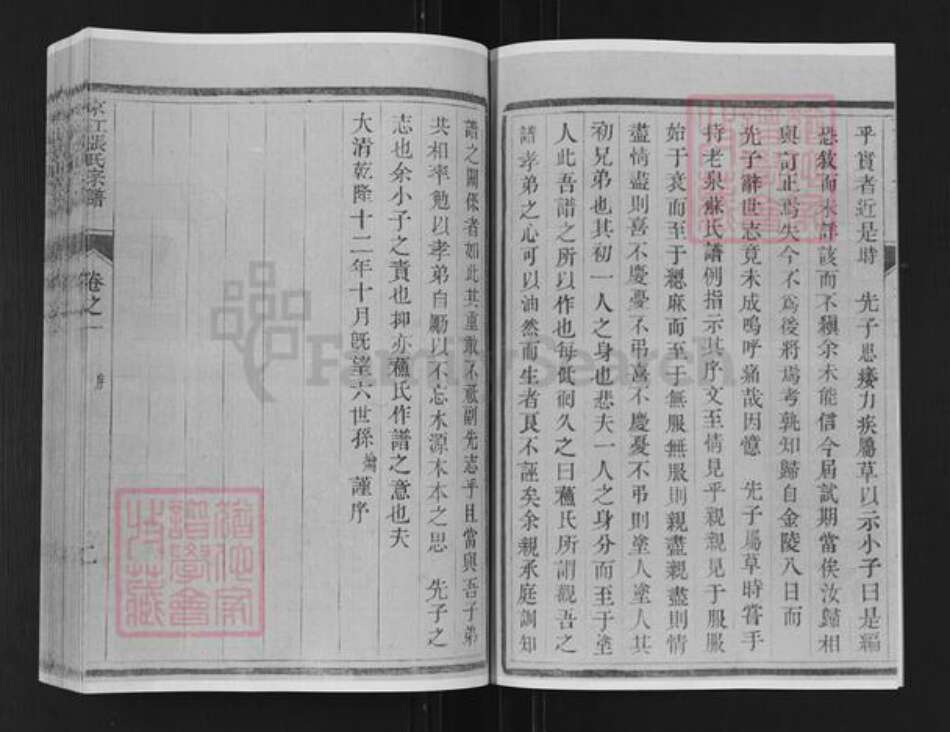 乎實者近是時　先子患痿力疾屬草以示小子曰是編
恐敘而未詳該而不稹余未能信今屆試期當俟汝歸相
與訂正焉失今不為後將焉考孰知歸自金陵八日而
先子辭世志竟未成嗚呼痛哉因憶　先子屬草時嘗手
持老泉蘇氏譜例指示其序文至情見乎親親見于服服
始于衰而至于緦麻而至于無服無服則親盡親盡則情
盡情盡則喜不慶憂不弔喜不慶憂不弔則塗人塗人其
初兄弟也其初一人之身也悲夫一人之身分而至于塗
人此吾譜之所以作也每低徊久之曰蘓氏所謂觀吾之
譜孝弟之心可以油然而生者良不誣矣余親承庭訓知
譜之關係者如此其重敢不敬副先志乎且當與吾子弟
共相率勉以孝弟自勵以不忘水源木本之思　先子之
志也余小子之責也抑亦蘓氏作譜之意也夫
大清乾隆十二年十月既望六世孫　謹序
張氏宗譜
卷之一
序
二
譜學會
收藏
FamilySearch